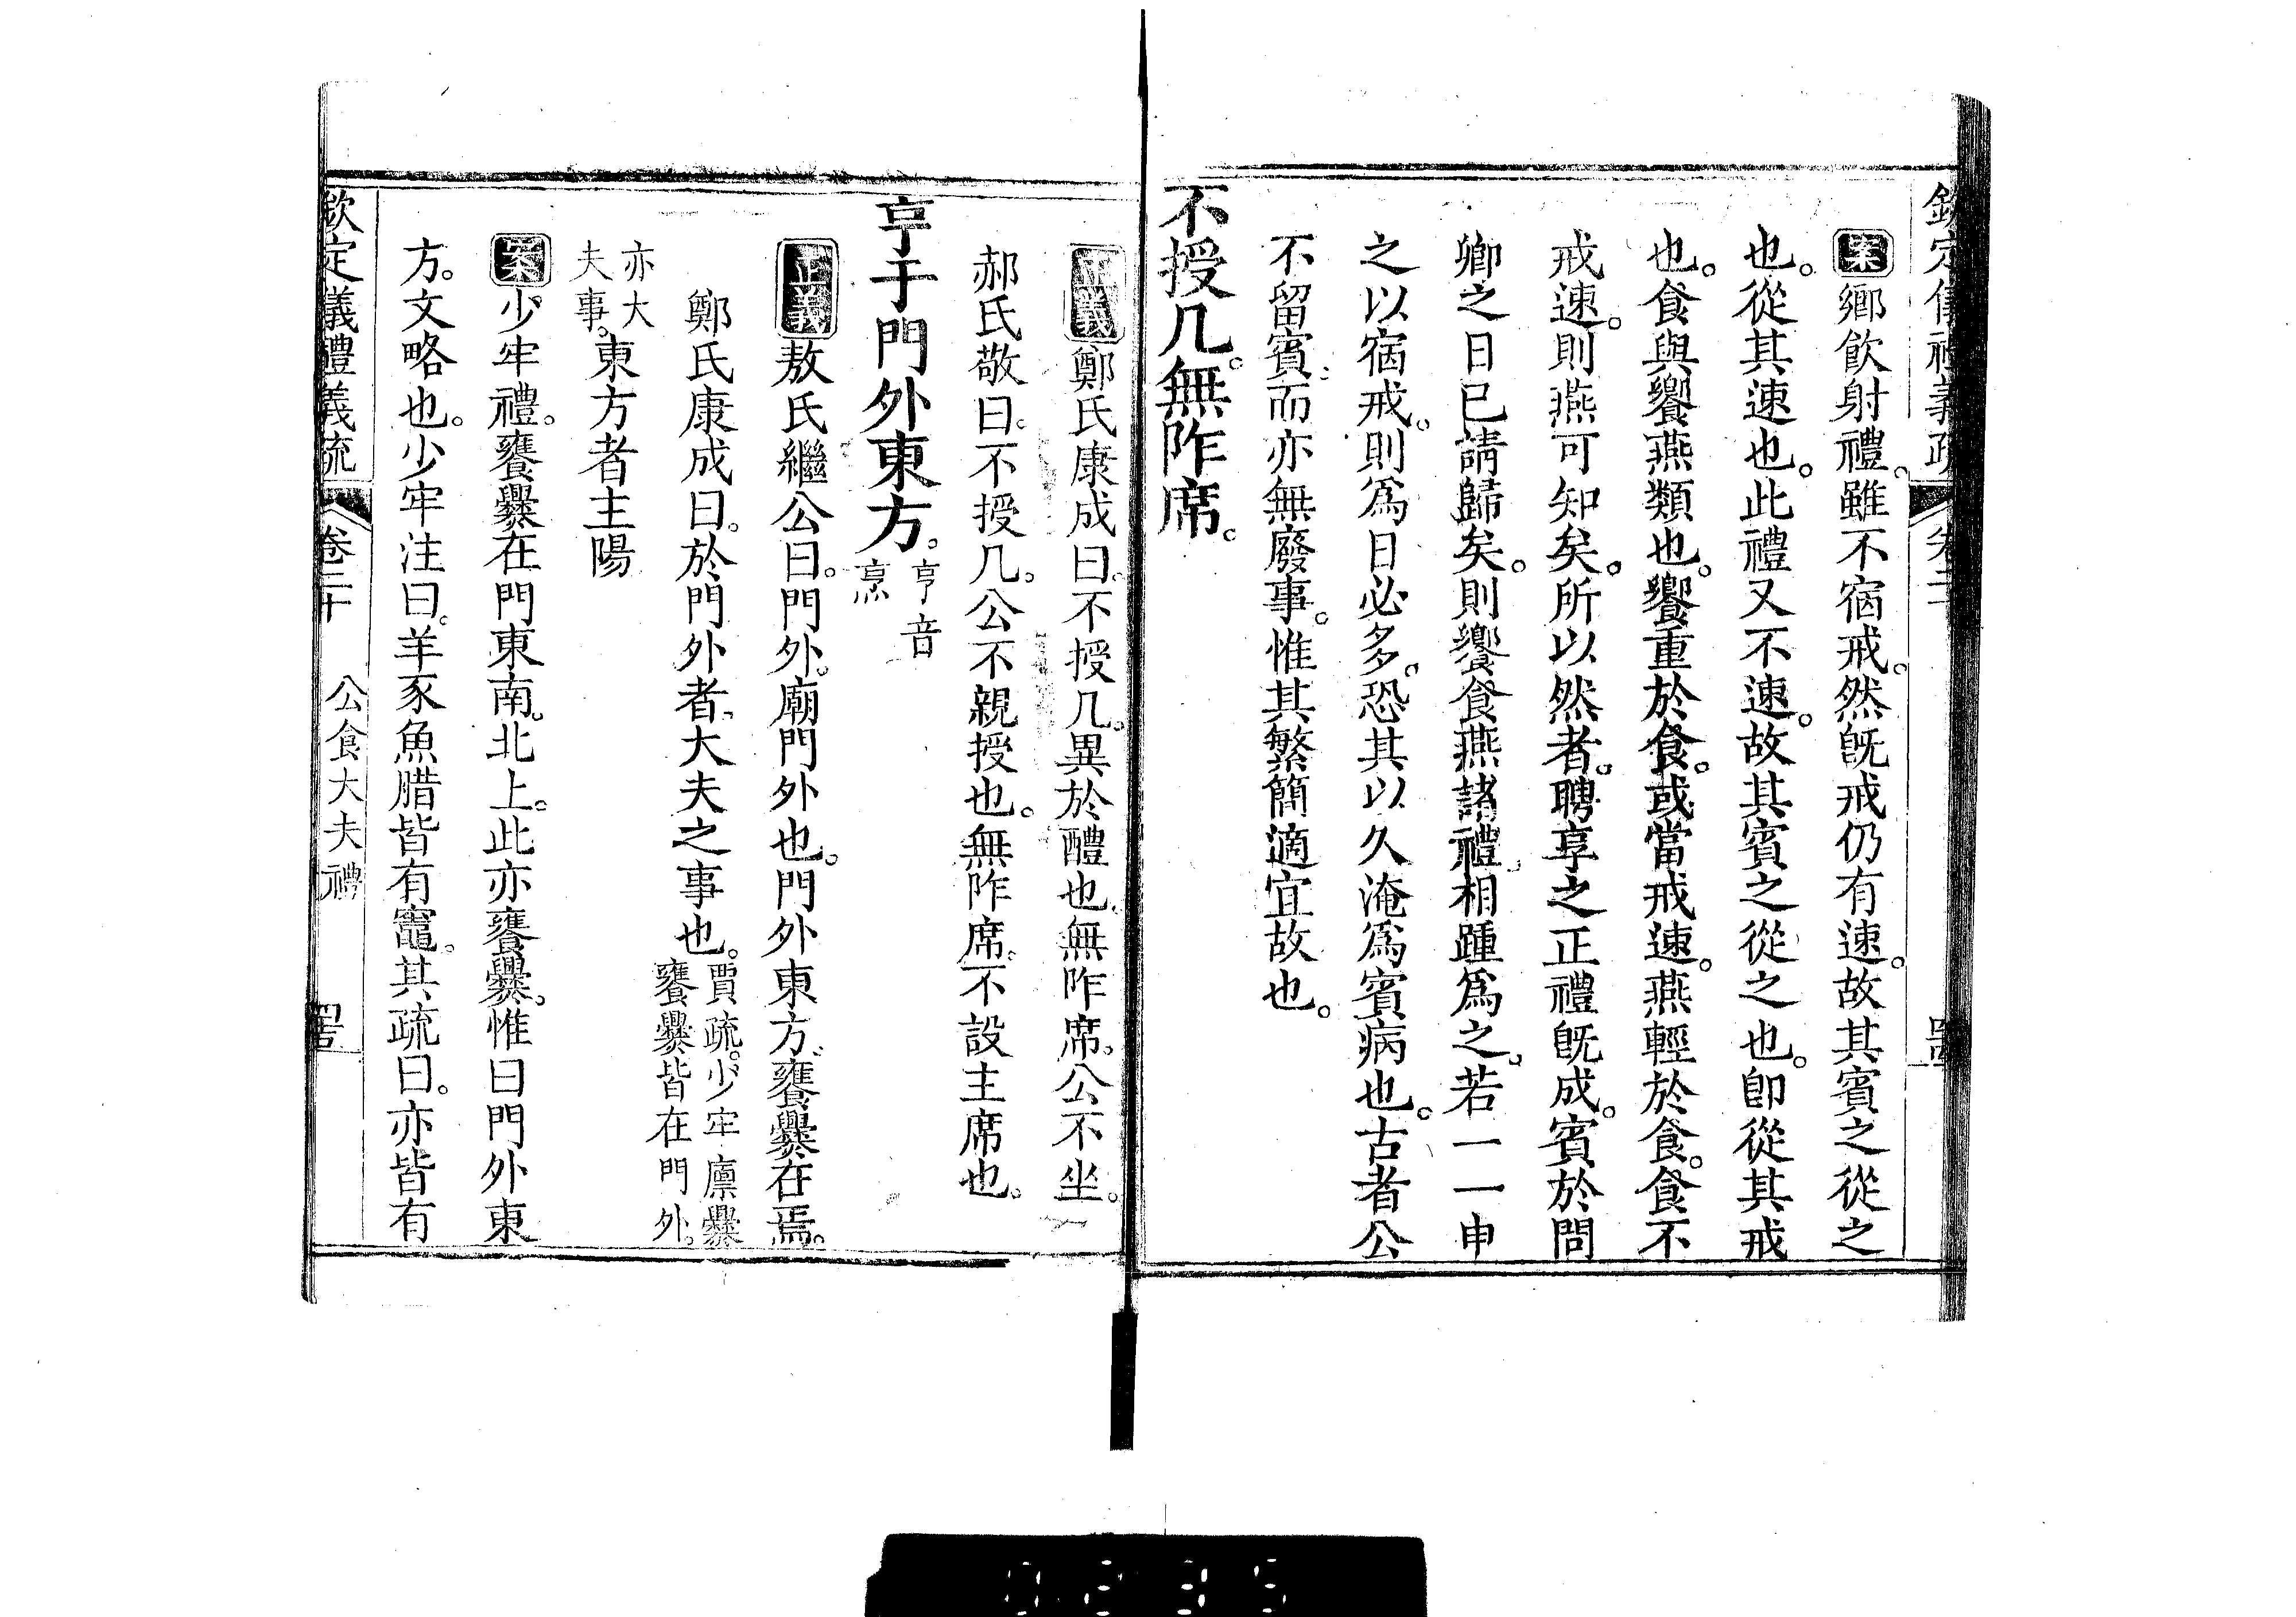 欽定儀禮義疏 卷二十
案鄉飲射禮。雖不宿戒。然旣戒仍有速。故其賓之從之
也。從其速也。此禮又不速。故其賓之從之也。卽從其戒
也。食與饗燕類也。饗重於食。或當戒速。燕輕於食。食不
戒速。則燕可知矣。所以然者。聘享之正禮旣成。賓於問
卿之日已請歸矣。則饗食燕諸禮。相踵爲之。若一一申
之以宿戒。則爲日必多。恐其以久淹爲賓病也。古者公
不留賓。而亦無廢事。惟其繁簡適宜故也。
不授几。無阼席。
正義鄭氏康成曰。不授几。異於醴也。無阼席。公不坐。
郝氏敬曰。不授几。公不親授也。無阼席。不設主席也。
亨于門外東方。亨音
烹
正義敖氏繼公曰。門外。廟門外也。門外東方。饔爨在焉。
鄭氏康成曰。於門外者。大夫之事也。賈疏。少牢廩爨
饔爨皆在門外。
亦大
夫事。東方者主陽
案少牢禮。饔爨在門東南。北上。此亦饔爨。惟曰門外東
方。文略也。少牢注曰。羊豕魚腊皆有竈。其疏曰。亦皆有
欽定儀禮義疏 卷二十 公食大夫禮